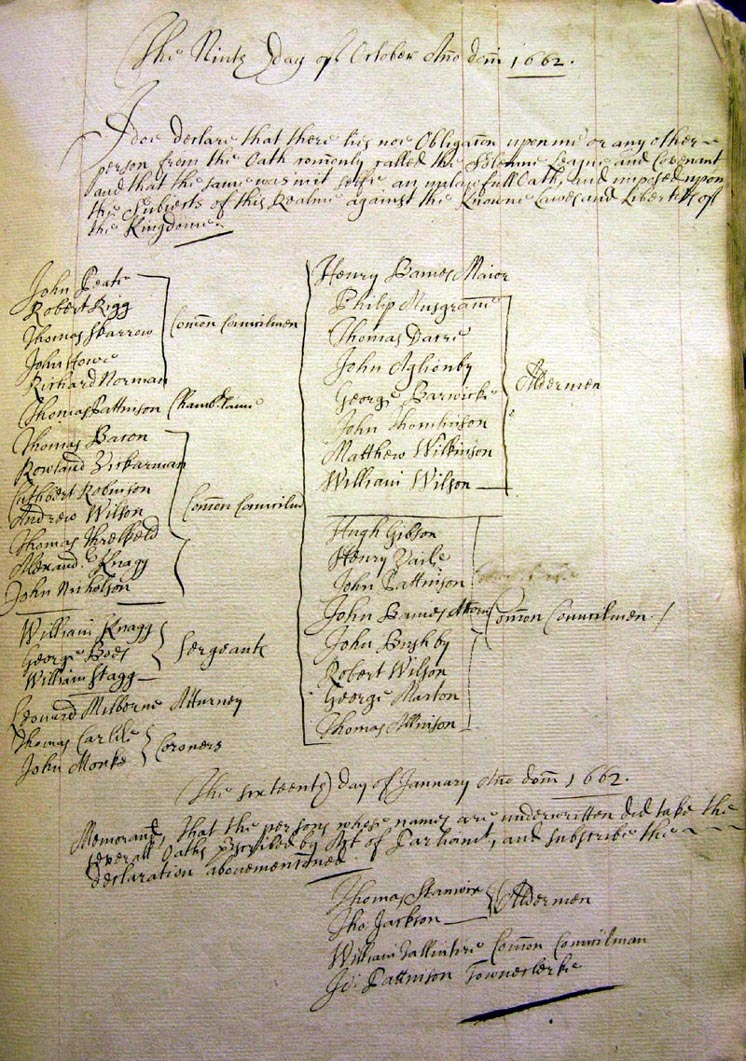 The Ninth Day of October Año dom̃ 1662.
I doe declare that there lies noe Obligac̃on upon me or any other
person from the Oath com̃only called the Solemne League and Covenant
and that the same was in it selfe an unlawfull Oath, and imposed upon
the Subiects of this Realme against the Knowne Lawes and Liberties of
the Kingdome
John Peate
Robert Rigg
Thomas Sparrow
John Howe
Richard Norman
Com̃on Councilmen
Thomas Pattinson Chamb:laine
Thomas Bacon
Rowland
Cuthbert Robinson
Andrew Wilson
Thomas Threlkeld
Alexand: Knagg
John Nicholson
Com̃on Councilm
William Knagg
George Bo
William Stagg
Sergeants
Leonard Milborne Atturney
Thomas Carlile
John Monke
Coroners
Henry Baines Maior
Philip Musgrave
Thomas Dacre
John Aglionby
George Barwicke
John Thomlinson
Matthew Wilkinson
William Wilson
Aldermen
Hugh Gibson
Henry
John Pattinson
John Baines
John Bushby
Robert Wilson
George Marton
Thomas Atkinson
Com̃on Councilmen
The sixteenth day of January Año dom̃ 1662.
Memorand, that the persons whose names are underwritten did take the
severall Oaths p̃scribed by Act of Parliamt, and subscribe the
declaration abovemenc̃oned
Thomas Stanwix
Tho Jackson
Aldermen
William Tallintire Com̃on Councilman
Jo: Pattinson Towneclerke